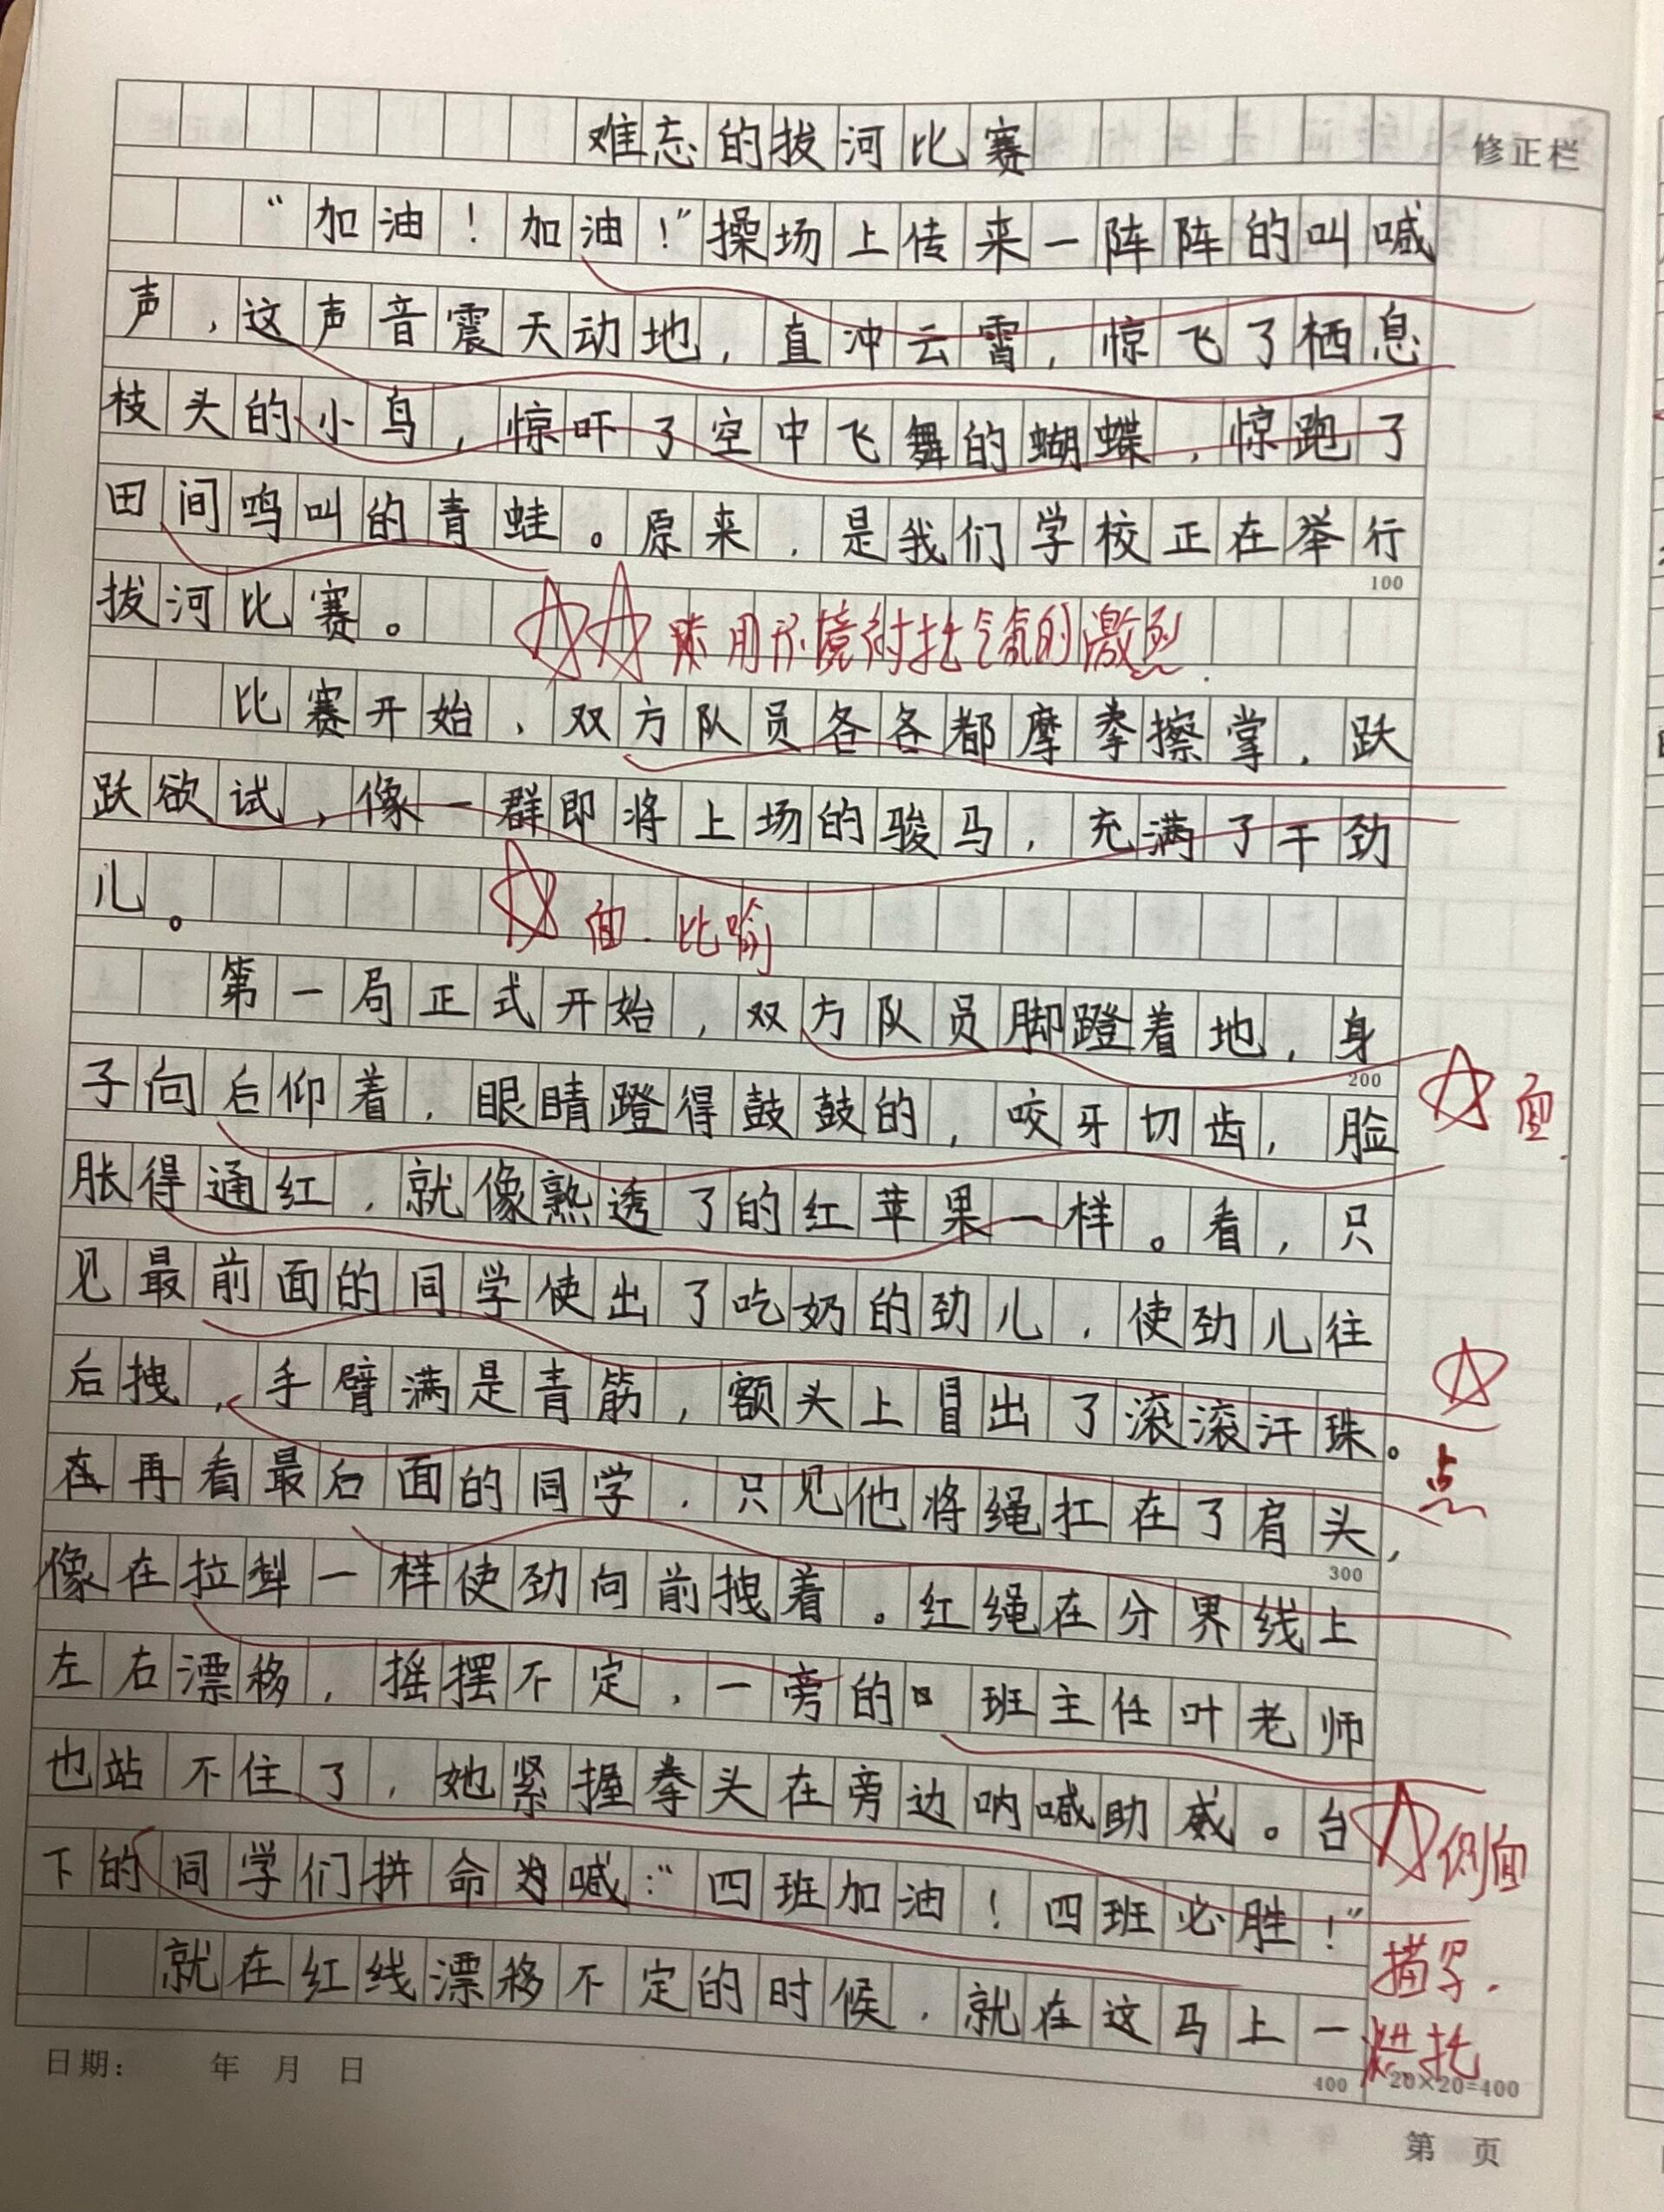 难忘的拔河比赛
修正栏
“加油！加油！”操场上传来一阵阵的叫喊
声，这声音震天动地，直冲云霄，惊飞了栖息
枝头的小鸟，惊吓了空中飞舞的蝴蝶，惊跑了
田间鸣叫的青蛙。原来，是我们学校正在举行
100
拔河比赛。
用环境衬托气氛的激烈
比赛开始，双方队员各各都摩拳擦掌，跃
跃欲试，像一群即将上场的骏马，充满了干劲
儿。
面．比喻
第一局正式开始，双方队员脚蹬着地，身
200
子向后仰着，眼睛蹬得鼓鼓的，咬牙切齿，脸
面
胀得通红，就像熟透了的红苹果一样。看，只
见最前面的同学使出了吃奶的劲儿，使劲儿往
后拽，手臂满是青筋，额头上冒出了滚滚汗珠。
点
再看最后面的同学，只见他将绳扛在了肩头，
300
像在拉犁一样使劲向前拽着。红绳在分界线上
左右漂移，摇摆不定，一旁的班主任叶老师
也站不住了，她紧握拳头在旁边呐喊助威。台
下的同学们拼命喊：“四班加油！四班必胜！”
侧面
描写．
烘托
就在红线漂移不定的时候，就在这马上一
400
20×20=400
日期：　年　月　日
第　页